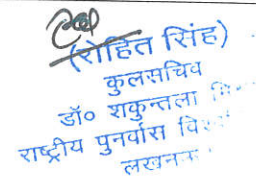 (रोहित सिंह)
कुलसचिव
डॉ० शकुन्तला
राष्ट्रीय पुनर्वास
लखनऊ